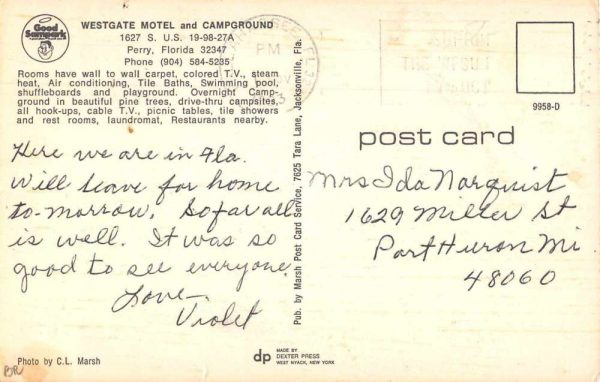 Good Sampark
WESTGATE MOTEL and CAMPGROUND
1627 S. U.S. 19-98-27A
Perry, Florida 32347
Phone (904) 584-5235
Rooms have wall to wall carpet, colored T.V., steam
heat, Air conditioning, Tile Baths, Swimming pool,
shuffleboards and playground. Overnight Camp-
ground in beautiful pine trees, drive-thru campsites,
all hook-ups, cable T.V., picnic tables, tile showers
and rest rooms, laundromat, Restaurants nearby.
Here we are in Fla.
Will leave for home
to-morrow. So far all
is well. It was so
good to see everyone.
Love
Violet
Photo by C.L. Marsh
BR
Pub. by Marsh Post Card Service, 7625 Tara Lane, Jacksonville, Fla.
PM
9958-D
post card
Mrs Ida Norquist
1629 Miller St
Port Huron Mi
48060
dp
MADE BY
DEXTER PRESS
WEST NYACK, NEW YORK